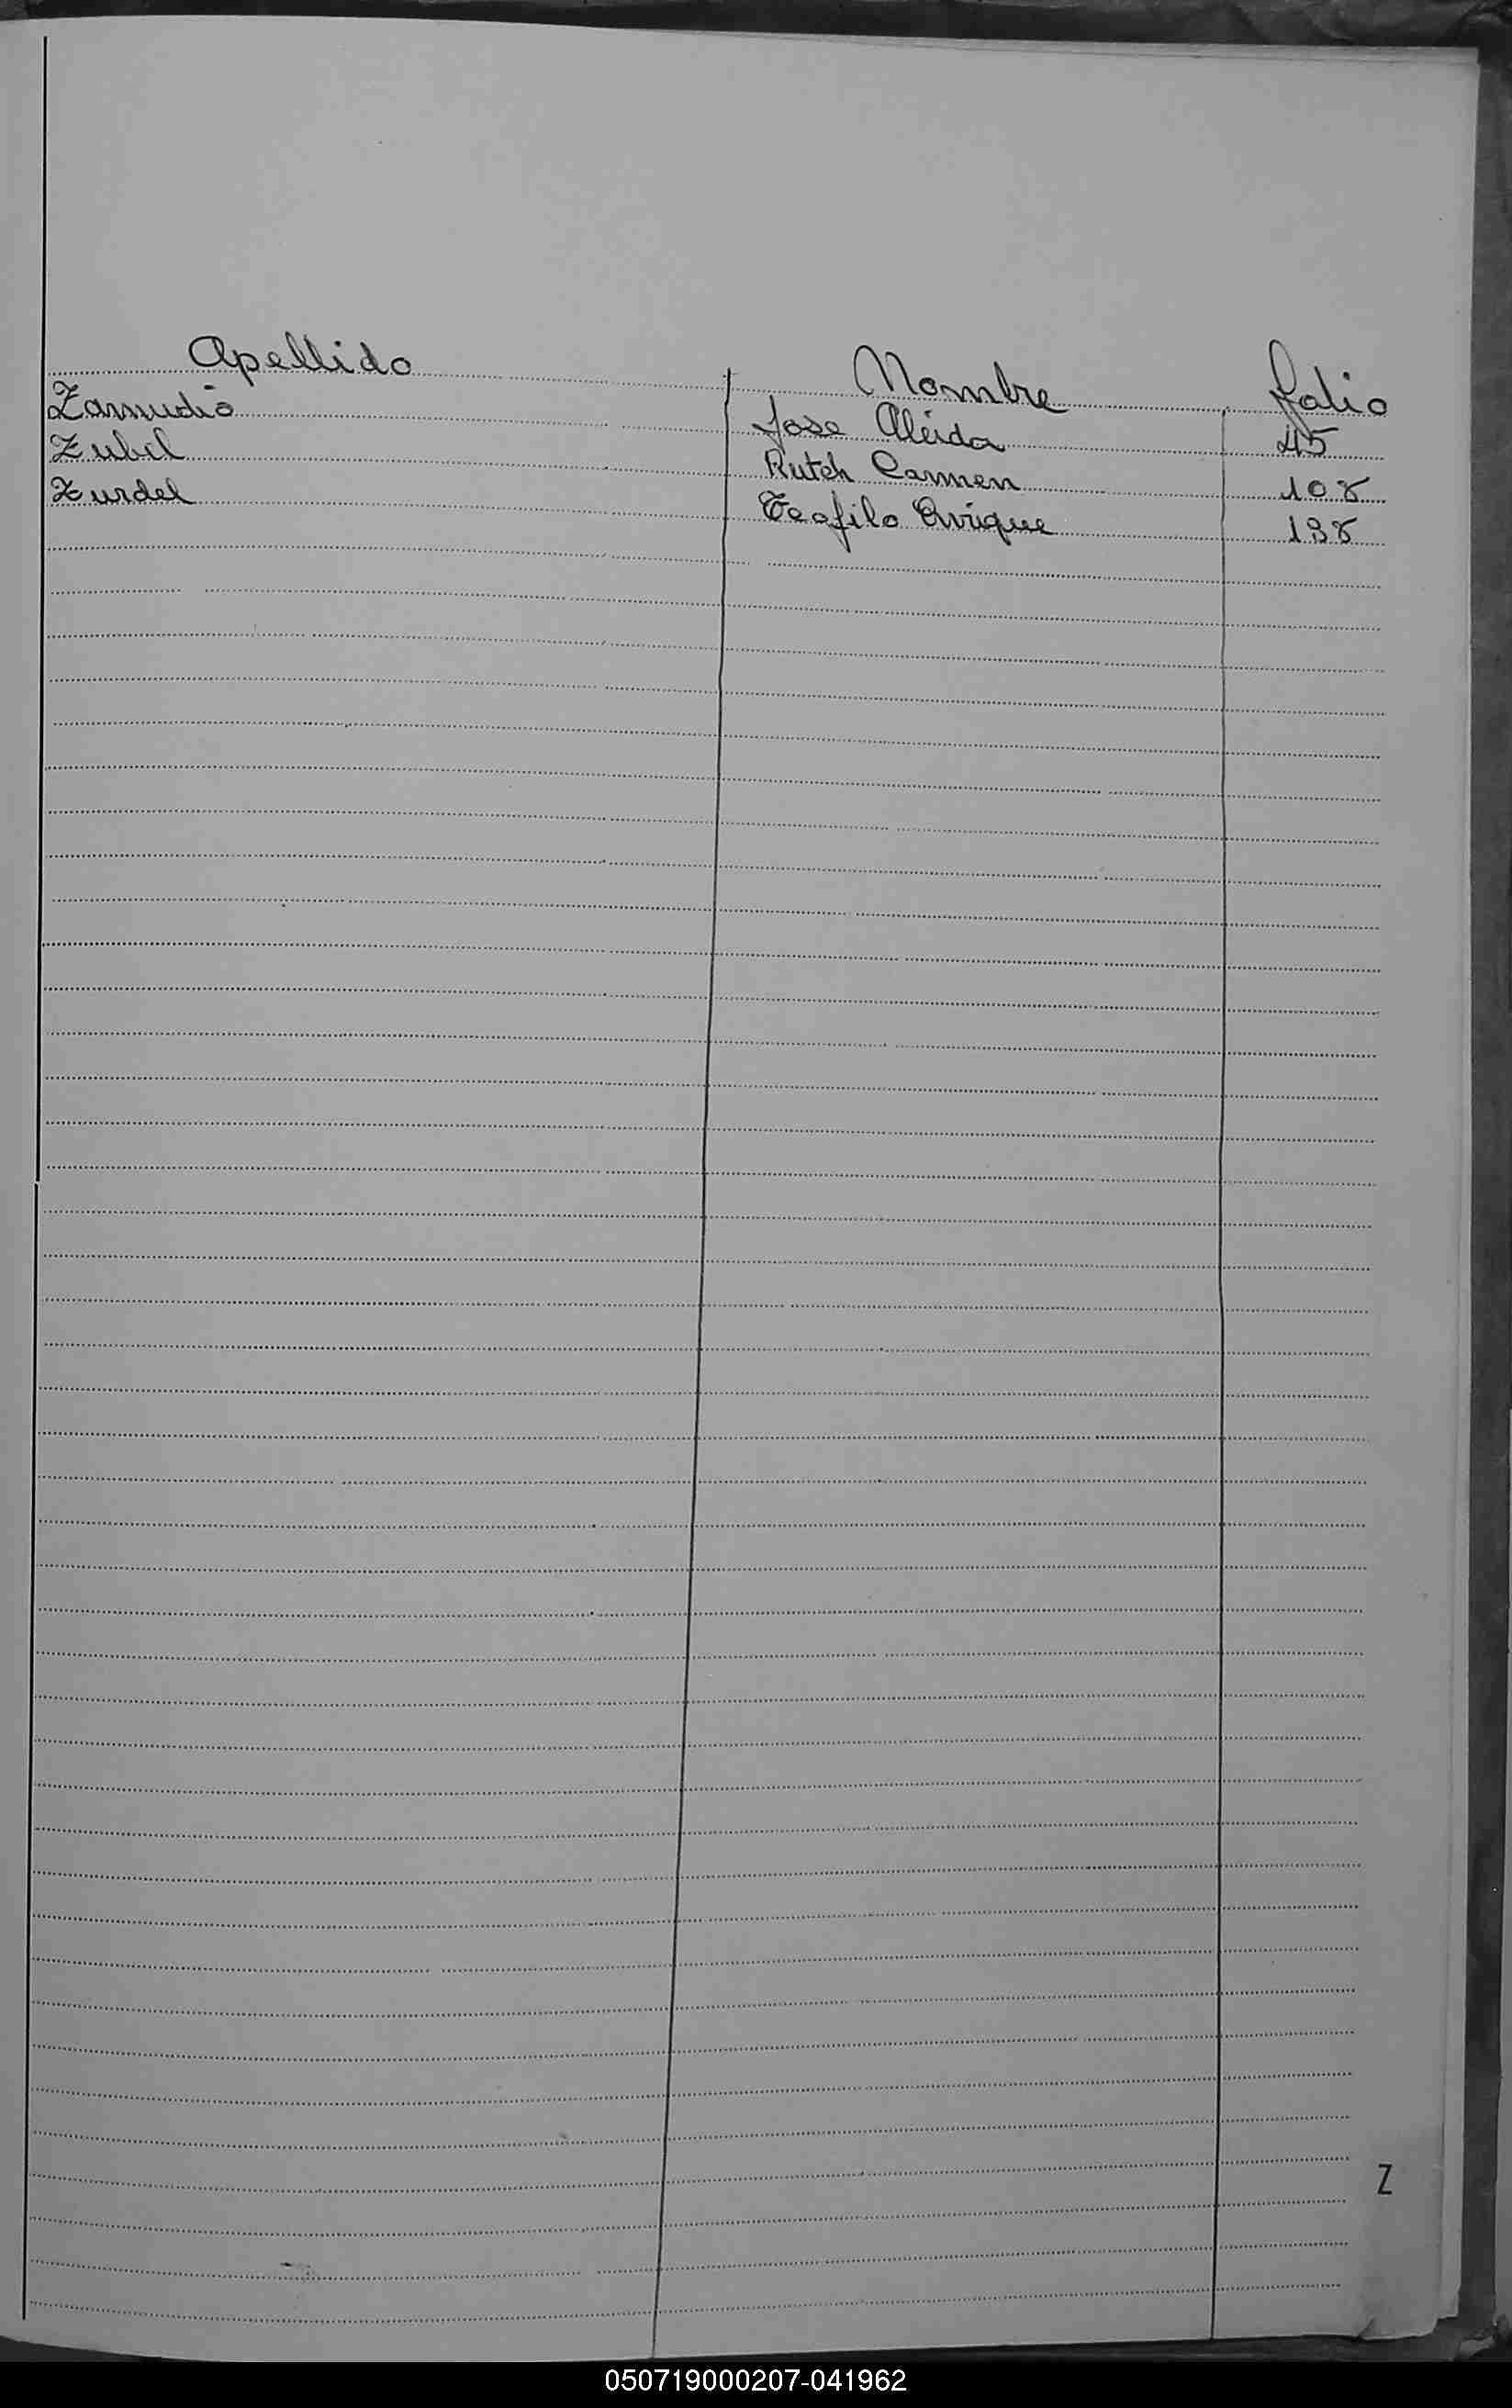 Apellido Nombre folio
Zamudio Jose Aleida 45
Zubel Rutch Carmen 108
Zurdel Teofilo Enrique 138
Z
050719000207-041962